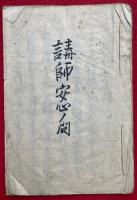 講師安心ノ問